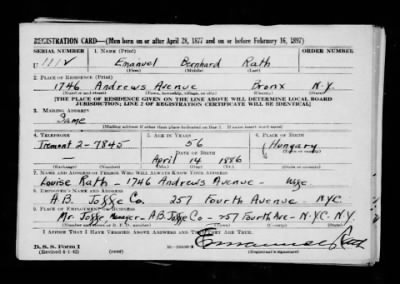 REGISTRATION CARD—(Men born on or after April 28, 1877 and on or before February 16, 1897)
SERIAL NUMBER 1. NAME (Print) ORDER NUMBER
U 1112 Emanuel Bernhard Rath
(First) (Middle) (Last)
2. PLACE OF RESIDENCE (Print)
1746 Andrews Avenue Bronx N.Y.
(Number and street) (Town, township, village, or city) (County) (State)
[THE PLACE OF RESIDENCE GIVEN ON THE LINE ABOVE WILL DETERMINE LOCAL BOARD
JURISDICTION; LINE 2 OF REGISTRATION CERTIFICATE WILL BE IDENTICAL]
3. MAILING ADDRESS
Same
[Mailing address if other than place indicated on line 2. If same insert word same]
4. TELEPHONE 5. AGE IN YEARS 6. PLACE OF BIRTH
Tremont 2-7845 56 Hungary
DATE OF BIRTH
— April 14 1886
(Exchange) (Number) (Mo.) (Day) (Yr.) (State or country)
7. NAME AND ADDRESS OF PERSON WHO WILL ALWAYS KNOW YOUR ADDRESS
Louise Rath - 1746 Andrews Avenue - Wife
8. EMPLOYER'S NAME AND ADDRESS
A.B. Co. 257 Fourth Avenue. NYC.
9. PLACE OF EMPLOYMENT OR BUSINESS
Mr Manager - A.B. Co - 257 Fourth Ave - N.Y.C. N.Y.
(Number and street or R. F. D. number) (Town) (County) (State)
I AFFIRM THAT I HAVE VERIFIED ABOVE ANSWERS AND THAT THEY ARE TRUE.
D. S. S. Form 1
(Revised 4-1-42) (Registrant's signature)
Emanuel Rath